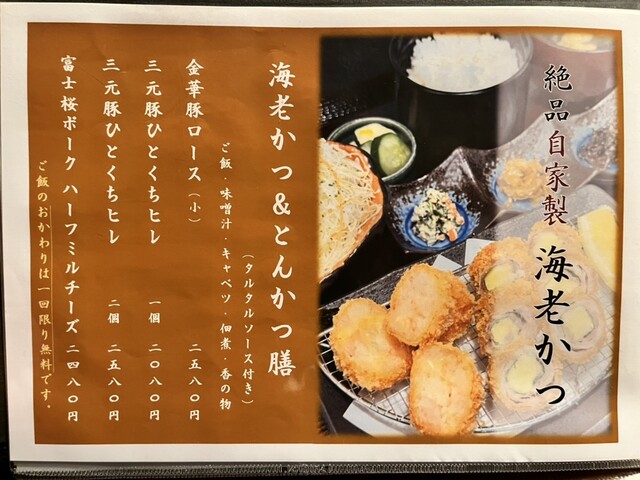 絶品自家製 海老かつ
海老かつ&とんかつ膳
(タルタルソース付き)
ご飯・味噌汁・キャベツ・佃煮・香の物
金華豚ロース(小) 二五八〇円
三元豚ひとくちヒレ 一個 二〇八〇円
三元豚ひとくちヒレ 二個 二五八〇円
富士桜ポーク ハーフミルチーズ 二四八〇円
ご飯のおかわりは一回限り無料です。